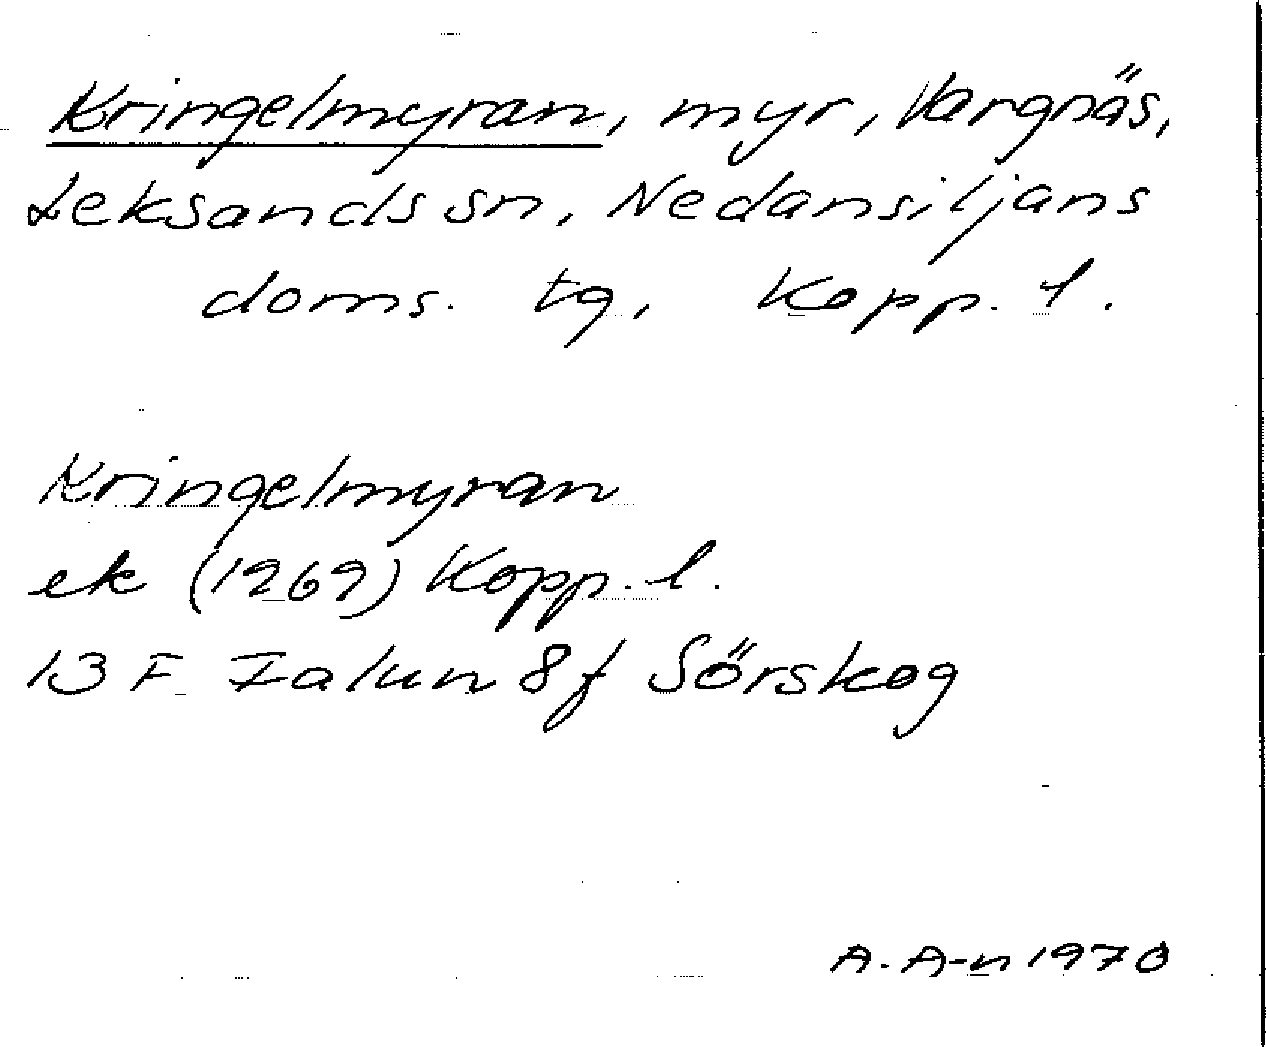 Kringelmyran, myr, Vargnäs,
Leksands sn, Nedansiljans
doms. tg, Kopp. l.
Kringelmyran
ek (1969) Kopp. l.
13 F Falun 8f Sörskog
A. A-n 1970